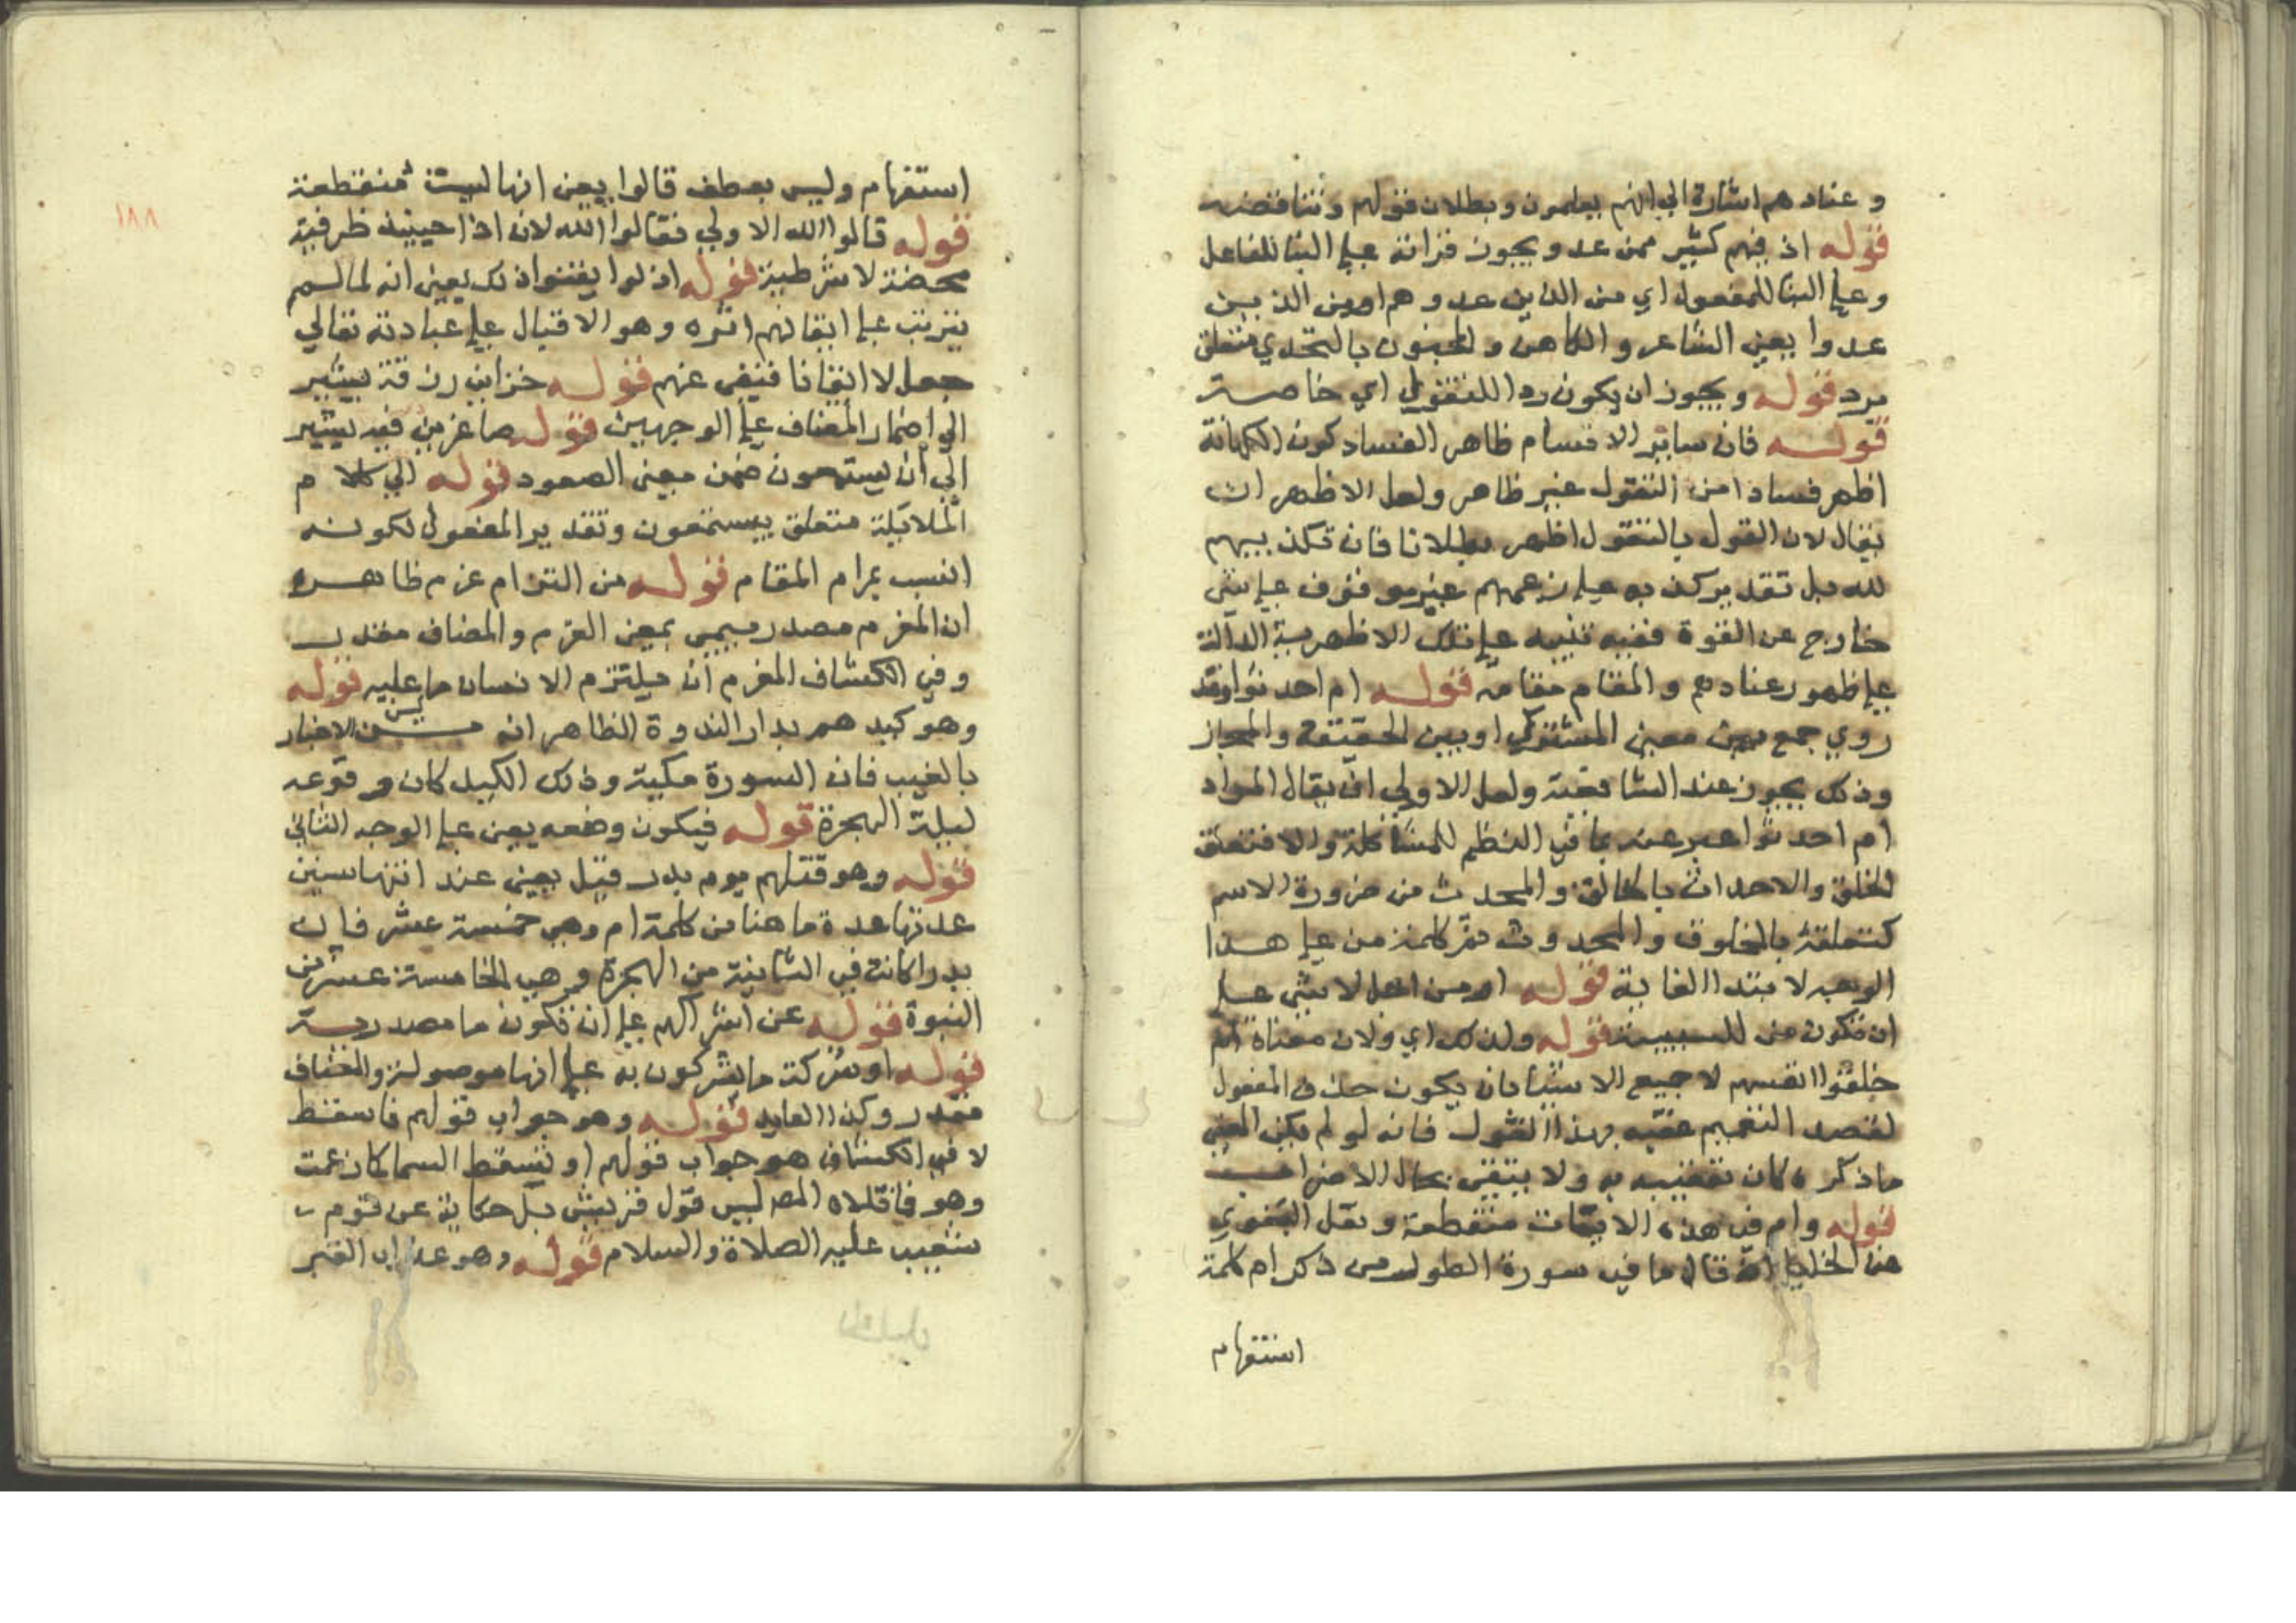 و عنادهم اشارة الي انهم يعلمون وبطلان قولهم وتناقضه
قوله اذ فيهم كثير ممن عد و يجوز قرانة علي البنا للفاعل
وعلي البنا للمفعول اي من الذين عدوهم او من الذين
عدوا يعني الشاعر والكاهن والمجنون بالتحدي متعلق
برد قوله ويجوز ان يكون ردا للتقول اي خاصة
قوله فان ساير الاقسام ظاهر الفساد كون الكهانة
اظهر فسادا من التقول غير ظاهر ولعل الاظهر ان
يقال لان القول بالتقول اظهر بطلانا فان تكذيبهم
لله بل تقدير كذبه علي زعمهم غير موقوف علي شي
خارج عن القوة ففيه تنبيه علي تلك الاظهرية الدالة
علي ظهور عنادهم والمقام مقامه قوله ام احدثوا وقد
روي جمع بين معني المشترك او بين الحقيقة والمجاز
وذلك يجوز عند الشافعية ولعل الاولي ان يقال المراد
ام احدثوا عبر عنه بما في النظم للمشاكلة والا فتعلق
الخلق والاحداث بالخالق والمحدث من ضرورة الاسم
كتعلقه بالمخلوق والمحدوث ثم كلمة من علي هذا
الوجه لابتدا الغاية قوله او من اجل لا شي علي
ان تكون من للسببية قوله ولذلك اي ولان معناه ام
خلقوا انفسهم لا جميع الاشيا بان يكون حذف المفعول
لقصد التعميم عقبه بهذا القول فانه لو لم يكن المعني
ما ذكره كان تعقيبه به ولا يبتغي بحال الاضراب
قوله وام في هذه الايات منقطعة ونقل البغوي
عن الخليل انه قال ما في سورة الطور من ذكر ام كلمة
استفهام
استفهام وليس بعطف قالوا يعني انها ليست منقطعة
قوله قالوا الله الاولي فقالوا الله لان اذا حينيذ ظرفية
محضة لا شرطية قوله اذ لو ايقنوا ذلك يعني انه لما لم
يترتب علي ايقانهم اثره وهو الاقبال علي عبادته تعالي
جعل لا ايقانا فنفي عنهم قوله خزاين رزقه يشير
الي اضمار المضاف علي الوجهين قوله صاعزين فيه يشير
الي ان يستمعون ضمن معني الصعود قوله الي كلام
الملايكة متعلق بيستمعون وتقدير المفعول لكونه
انسب بمرام المقام قوله من التزام غرم ظاهره
ان المغرم مصدر ميمي بمعني الغرم والمضاف مقدر
وفي الكشاف المغرم ان يلتزم الانسان ما عليه قوله
وهو كيدهم بدار الندوة الظاهر انه من الاخبار
بالغيب فان السورة مكية وذلك الكيد كان وقوعه
ليلة الهجرة قوله فيكون وضعه يعني علي الوجه الثاني
قوله وهو قتلهم يوم بدر قيل يعني عند انتها سنين
عدتها عدة ما هنا من كلمة ام وهي خمسة عشر فان
بدرا كانت في الثانية من الهجرة وهي الخامسة عشر من
النبوة قوله عن اشراكهم علي ان تكون ما مصدرية
قوله او شركة ما يشركون به علي انها موصولة والمضاف
مقدر وكذا العايد قوله وهو جواب قولهم فاسقط
لا في الكشاف هو جواب قولهم او تسقط السما كما زعمت
وهو فاقلاه المص ليس قول قريش بل حكاية عن قوم
شعيب عليه الصلاة والسلام قوله وهو عذاب القبر
١٨٨